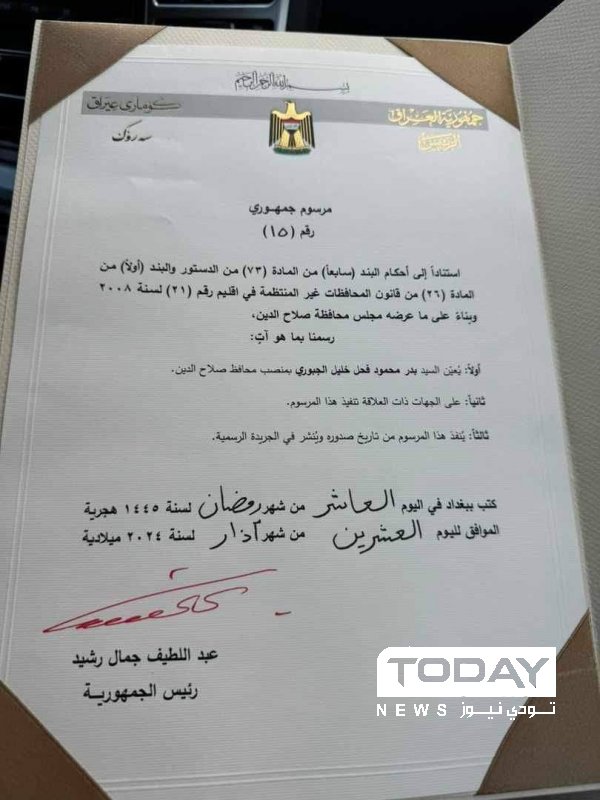 بسم الله الرحمن الرحيم
جمهورية العراق
الرئيس
كۆماری عێراق
سەرۆک
مرسوم جمهوري
رقم (١٥)
استناداً إلى أحكام البند (سابعاً) من المادة (٧٣) من الدستور والبند (أولاً) من
المادة (٢٦) من قانون المحافظات غير المنتظمة في اقليم رقم (٢١) لسنة ٢٠٠٨
وبناءً على ما عرضه مجلس محافظة صلاح الدين،
رسمنا بما هو آتٍ:
أولاً: يُعيّن السيد بدر محمود فحل خليل الجبوري بمنصب محافظ صلاح الدين.
ثانياً: على الجهات ذات العلاقة تنفيذ هذا المرسوم.
ثالثاً: يُنفذ هذا المرسوم من تاريخ صدوره ويُنشر في الجريدة الرسمية.
كتب ببغداد في اليوم العاشر من شهر رمضان لسنة ١٤٤٥ هجرية
الموافق لليوم العشرين من شهر آذار لسنة ٢٠٢٤ ميلادية
عبد اللطيف جمال رشيد
رئيس الجمهورية
TODAY
NEWS تودي نيوز